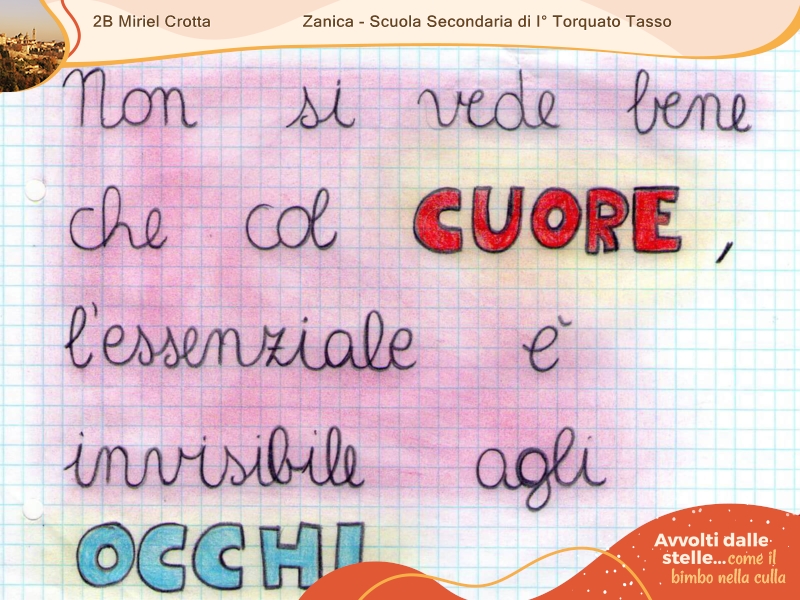 2B Miriel Crotta Zanica - Scuola Secondaria di I° Torquato Tasso
Non si vede bene
che col CUORE,
l'essenziale è
invisibile agli
OCCHI
Avvolti dalle
stelle... come il
bimbo nella culla